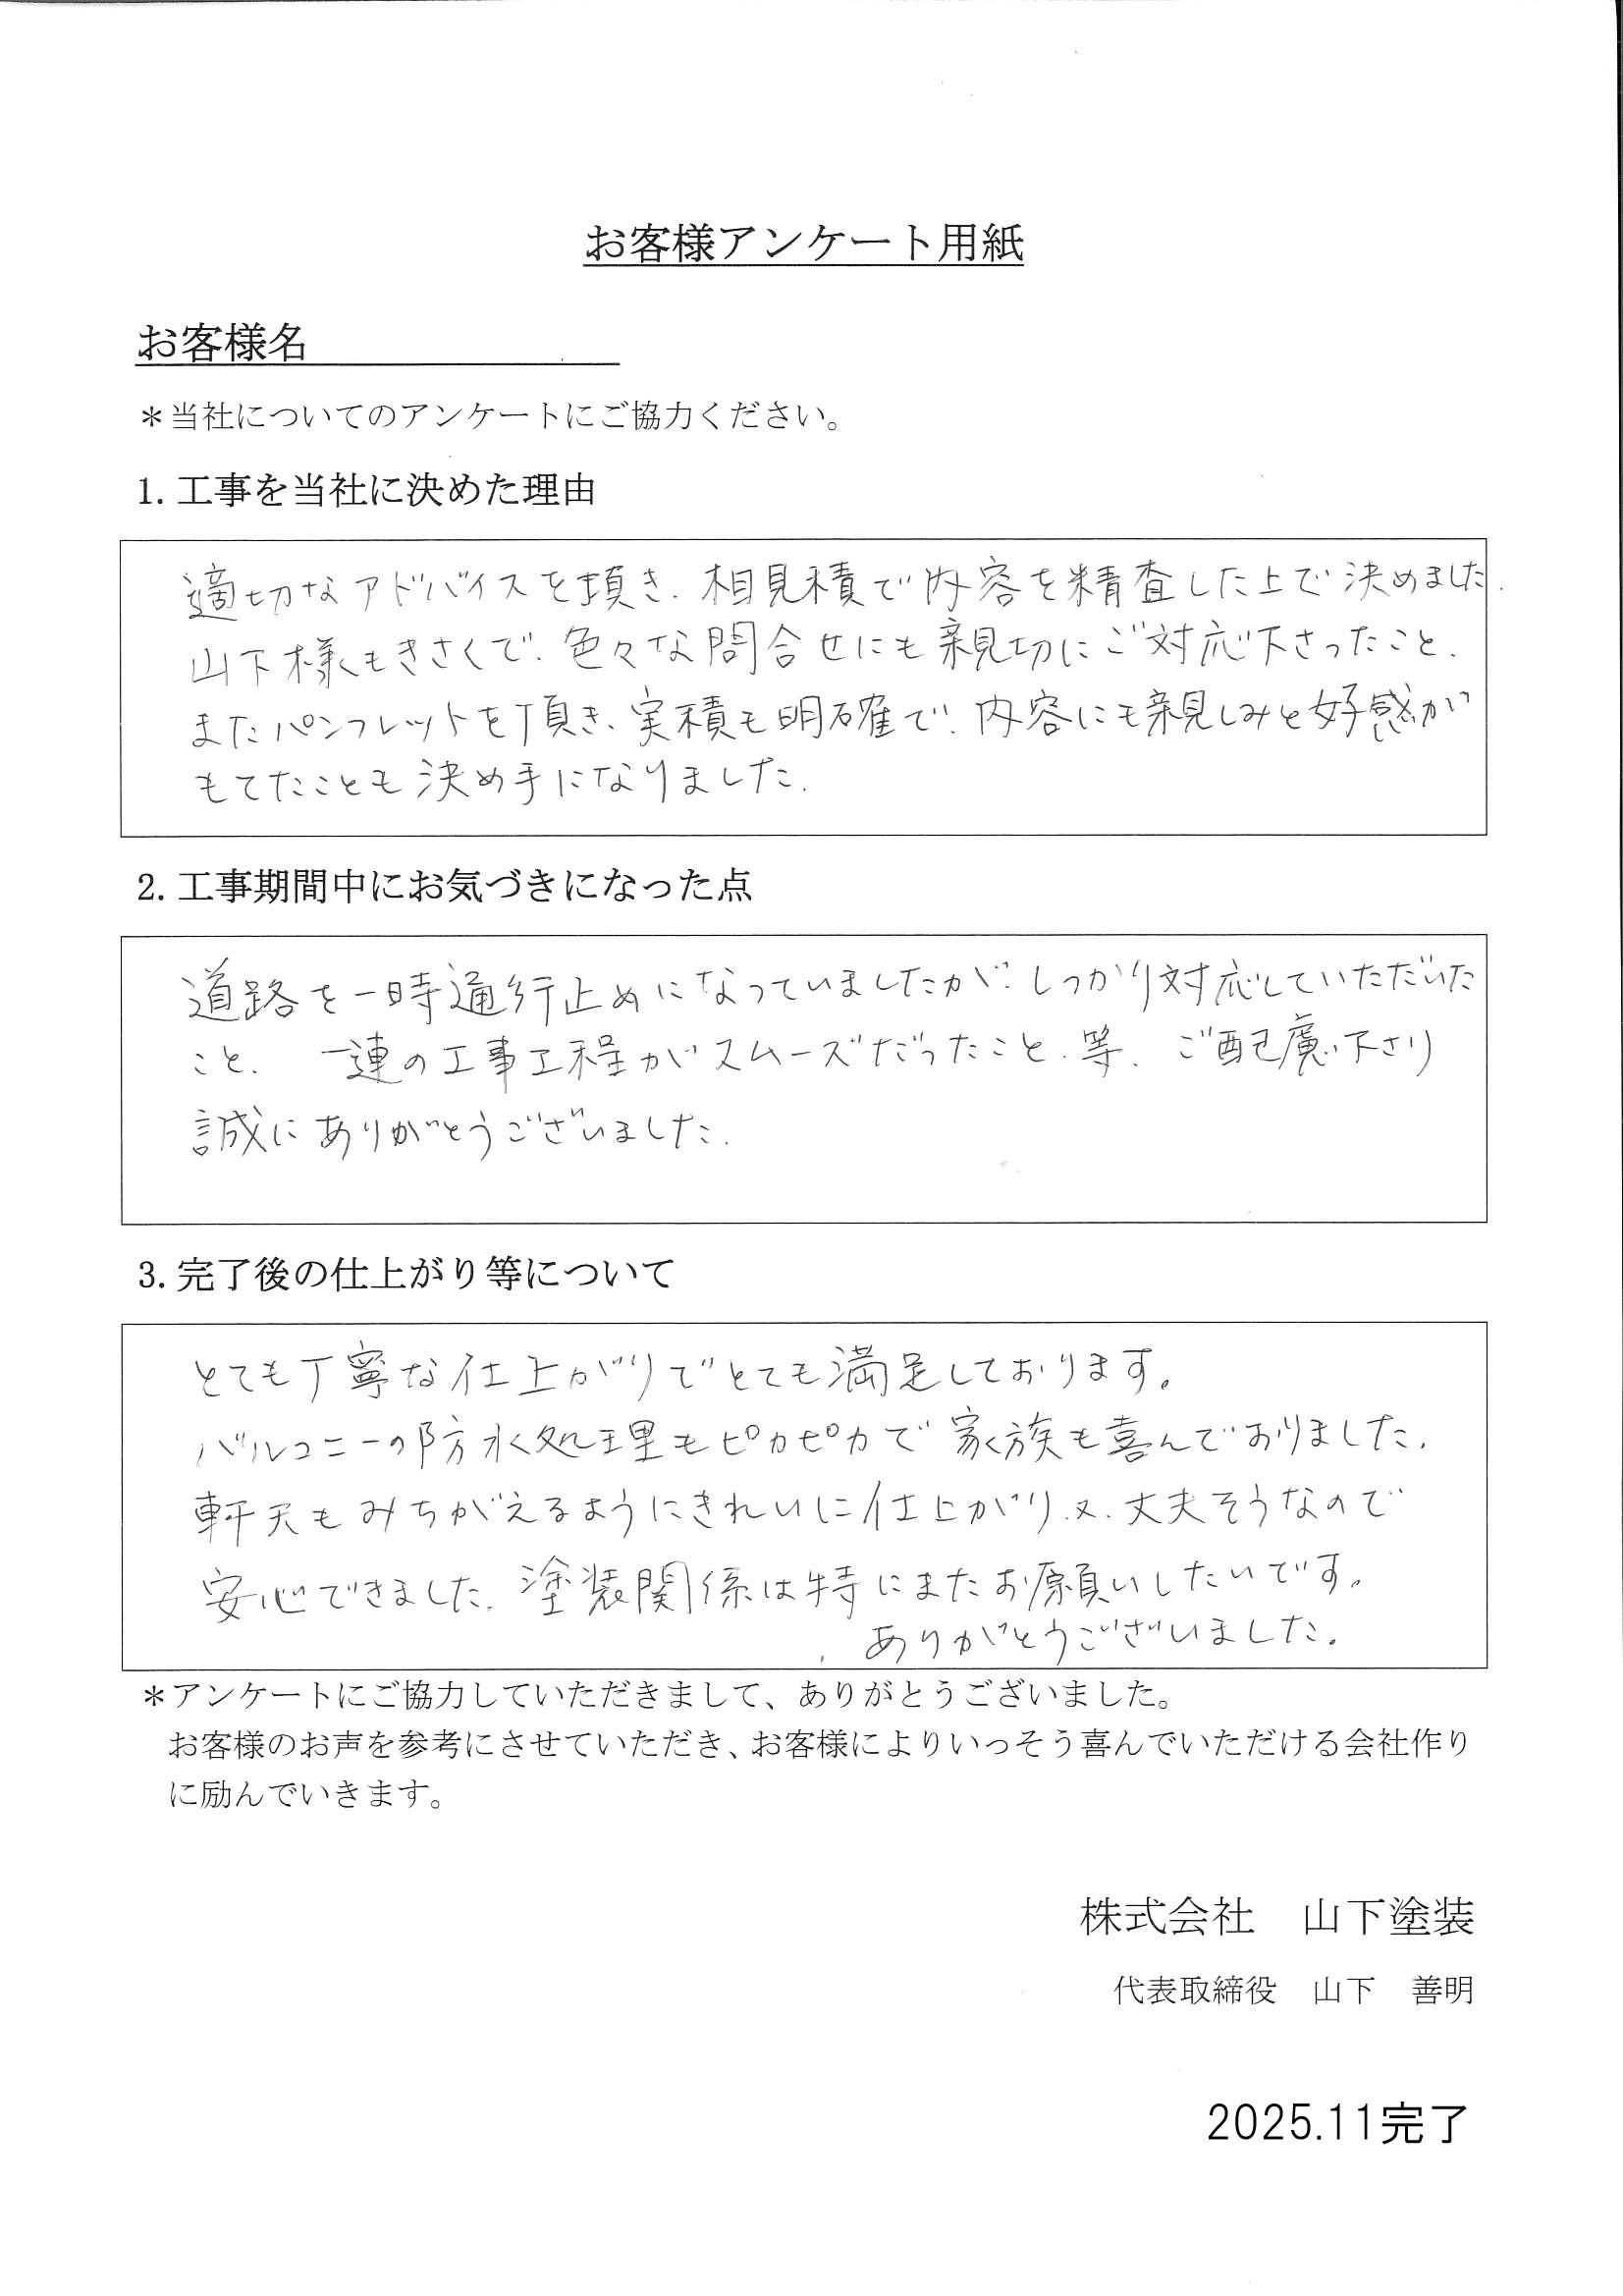 お客様アンケート用紙
お客様名
＊当社についてのアンケートにご協力ください。
1. 工事を当社に決めた理由
適切なアドバイスを頂き、相見積で内容を精査した上で決めました。
山下様もきさくで、色々な問合せにも親切にご対応下さったこと、
またパンフレットを頂き、実積も明確で、内容にも親しみと好感が
もてたことも決め手になりました。
2. 工事期間中にお気づきになった点
道路を一時通行止めになっていましたが、しっかり対応していただいた
こと、 一連の工事工程がスムーズだったこと、等、ご配慮下さり
誠にありがとうございました。
3. 完了後の仕上がり等について
とても丁寧な仕上がりでとても満足しております。
バルコニーの防水処理もピカピカで家族も喜んでおりました。
軒天もみちがえるようにきれいに仕上がり、又、丈夫そうなので
安心できました。塗装関係は特にまたお願いしたいです。
ありがとうございました。
＊アンケートにご協力していただきまして、ありがとうございました。
お客様のお声を参考にさせていただき、お客様によりいっそう喜んでいただける会社作り
に励んでいきます。
株式会社　山下塗装
代表取締役　山下　善明
2025.11完了